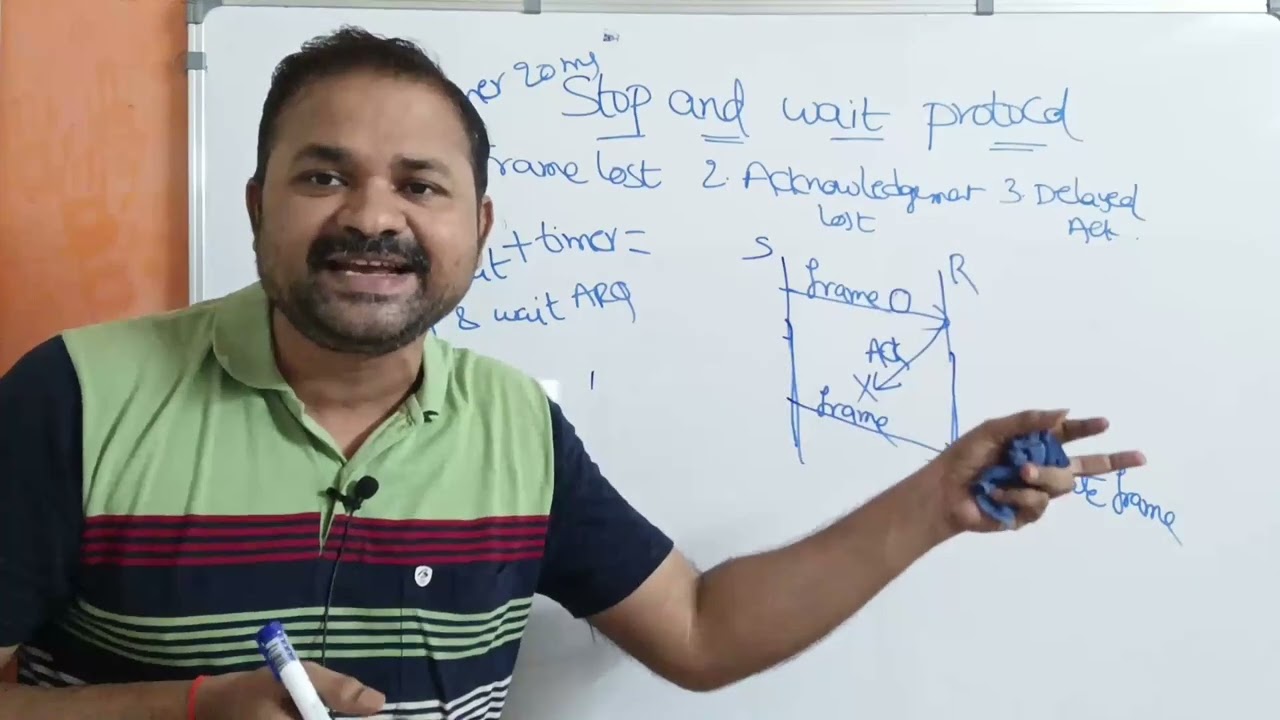 20 ms
Stop and wait protocol
frame lost 2. Acknowledgemer 3. Delayed
lost Ack.
+ timer =
& wait ARQ
S R
frame 0
Ack
X
frame
frame